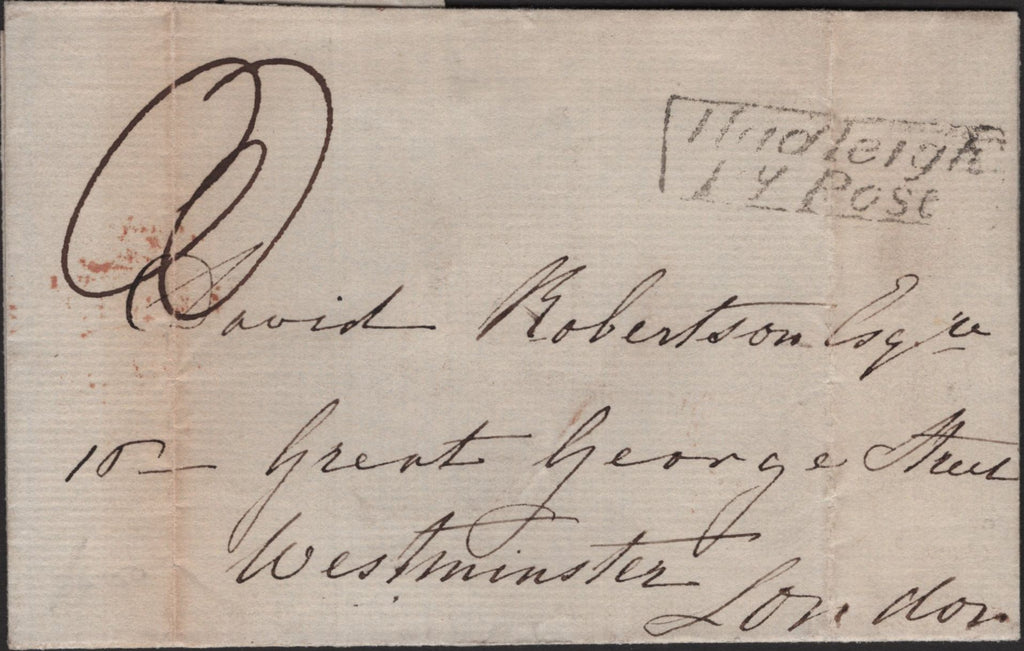 Hadleigh
PY Post
David Robertson Esqre
15 Great George Street
Westminster
London